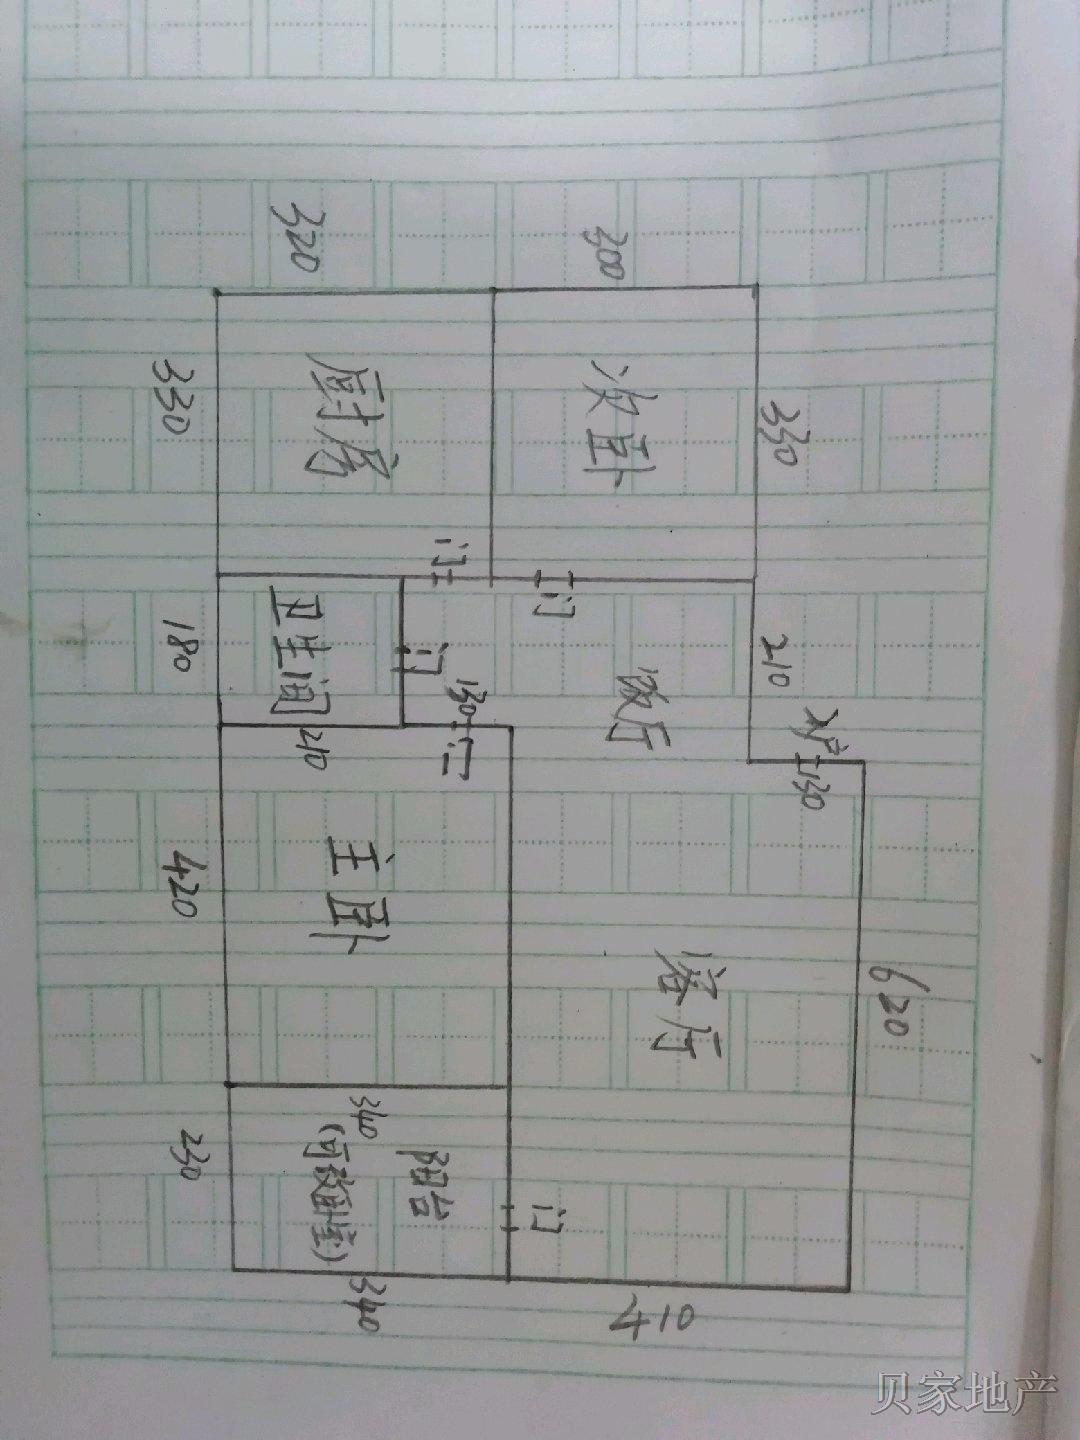 320
300
厨房
330
次卧
330
门
门
卫生间
180
门
130
饭厅
210
入户
门
130
210
门
主卧
420
客厅
620
340
阳台
(可改卧室)
230
门
340
410
贝家地产